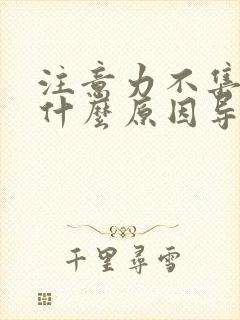 注意力不集
什麼原因导
千里尋雪